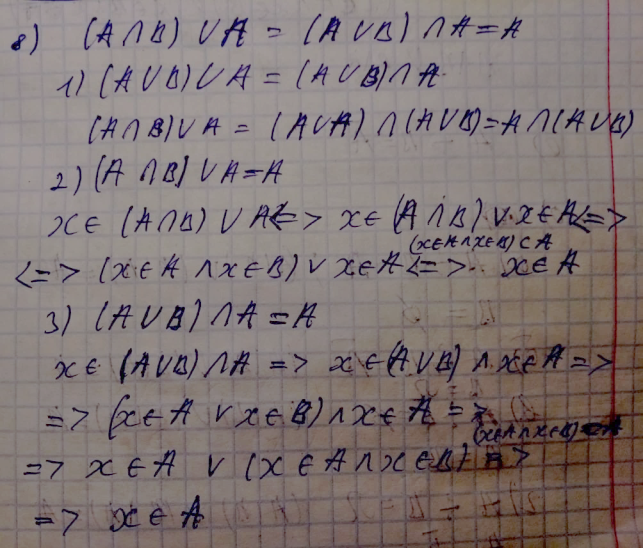 8) (A∩B) ∪A = (A∪B) ∩A = A
1) (A∪B)∪A = (A∪B)∩A
(A∩B)∪A = (A∪A) ∩(A∪B)=A∩(A∪B)
2) (A ∩B) ∪A=A
x∈ (A∩B) ∪ A<=> x∈ (A∩B) ∨ x∈A<=>
(x∈A∧x∈B)⊂A
<=> (x∈A ∧x∈B) ∨ x∈A<=> x∈A
3) (A∪B) ∩A = A
x∈ (A∪B) ∩A => x∈(A∪B) ∧x∈A =>
=> (x∈A ∨ x∈B)∧x∈A =>
=> x∈A ∨ (x∈A∧x∈B) =>
=> x∈A